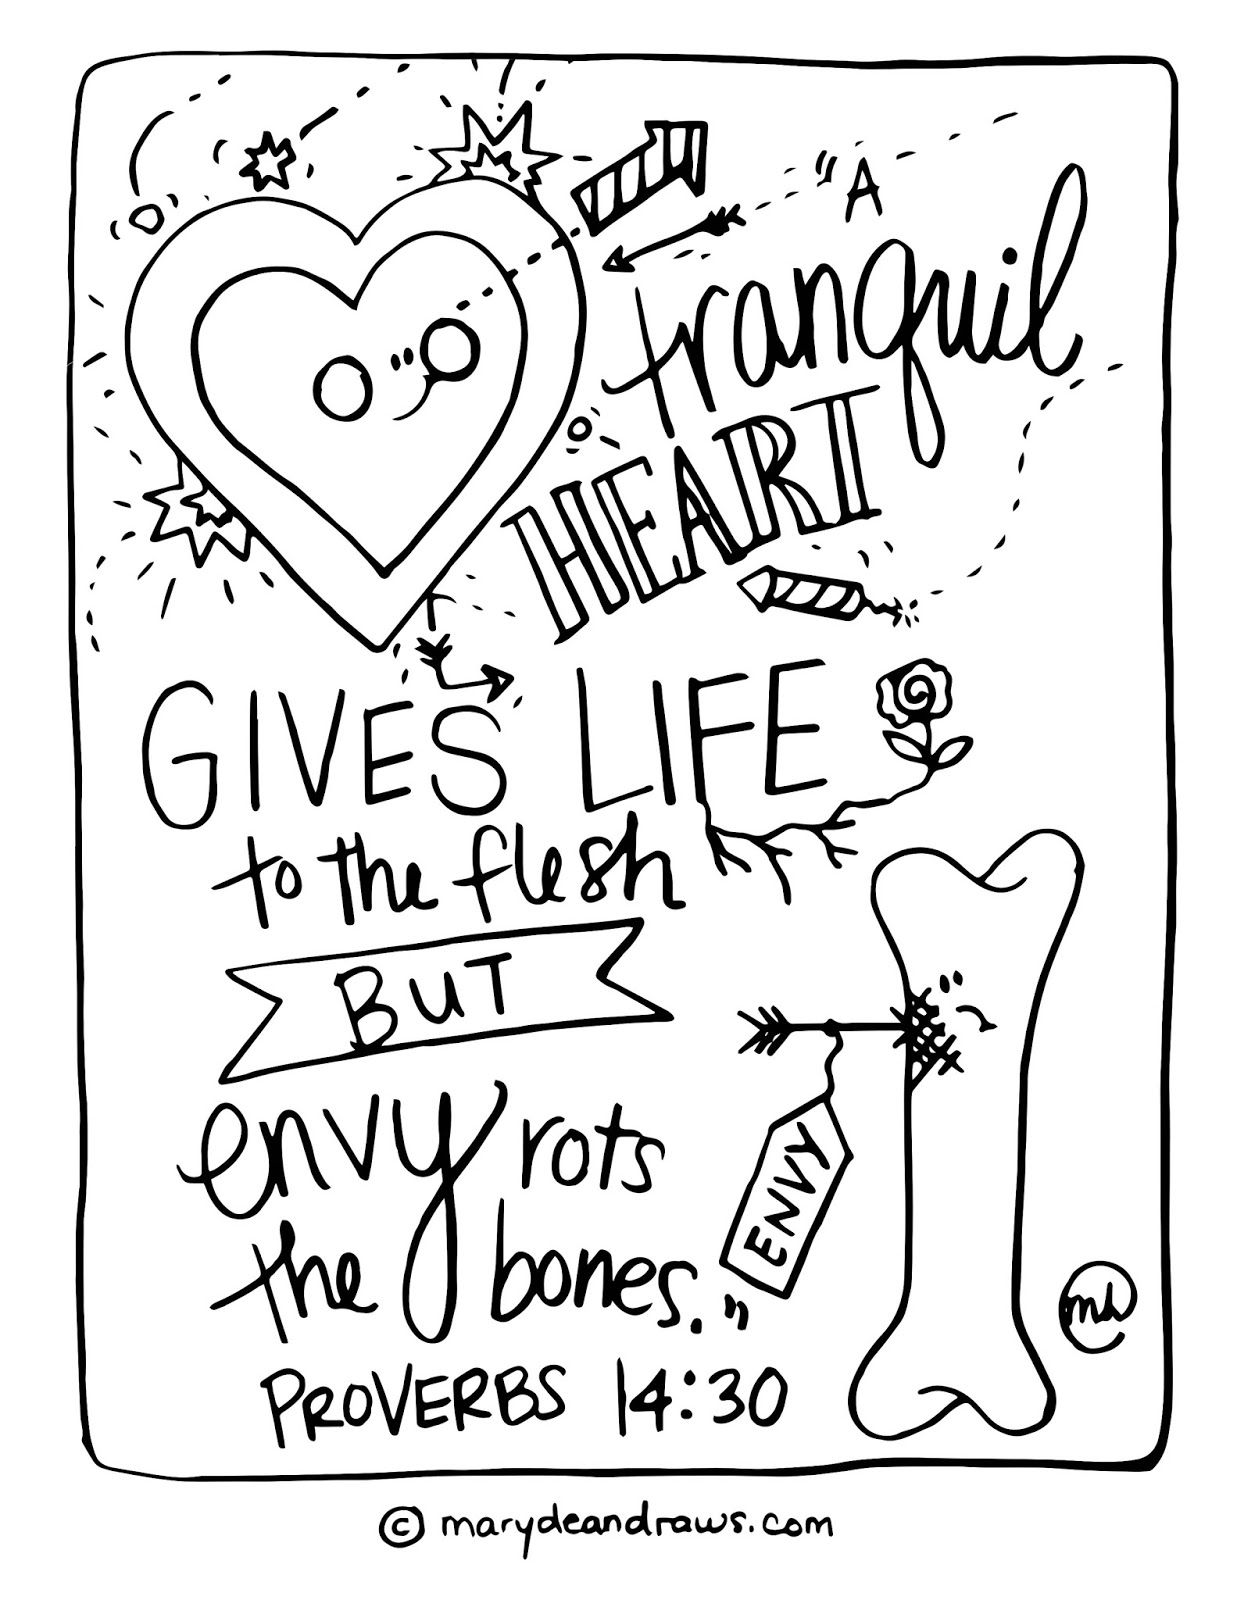 "A
tranquil
HEART
GIVES LIFE
to the flesh
BUT
envy rots
the bones."
ENVY
PROVERBS 14:30
© marydeandraws.com